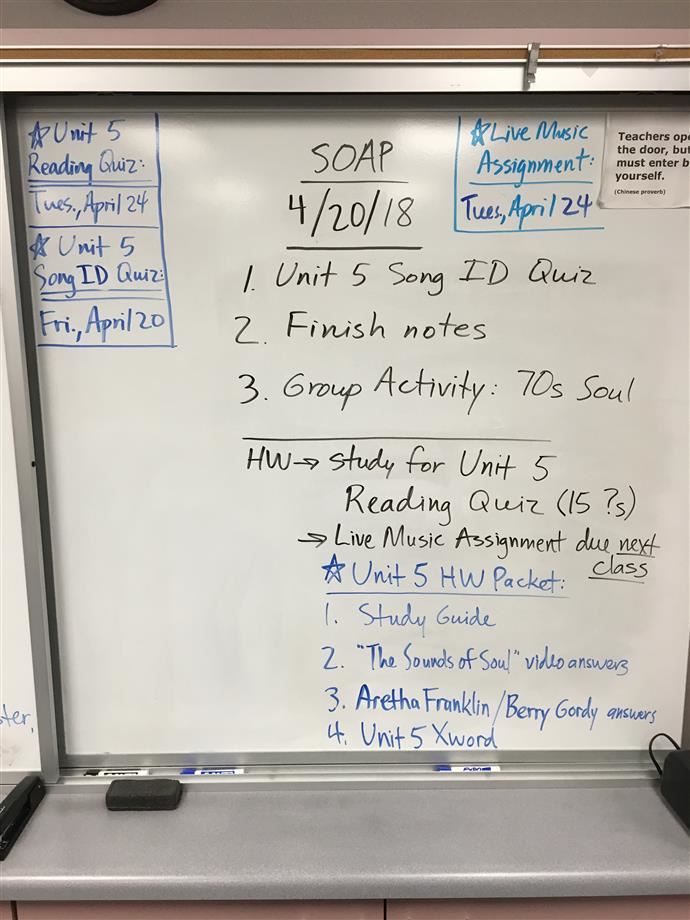 ☆ Unit 5
Reading Quiz:
Tues., April 24
☆ Unit 5
Song ID Quiz:
Fri., April 20
SOAP
4/20/18
☆ Live Music
Assignment:
Tues., April 24
Teachers
the door, but
must enter
yourself.
(Chinese proverb)
1. Unit 5 Song ID Quiz
2. Finish notes
3. Group Activity: 70s Soul
HW → study for Unit 5
Reading Quiz (15 ?s)
→ Live Music Assignment due next
class
☆ Unit 5 HW Packet:
1. Study Guide
2. "The Sounds of Soul" video answers
3. Aretha Franklin/Berry Gordy answers
4. Unit 5 Xword